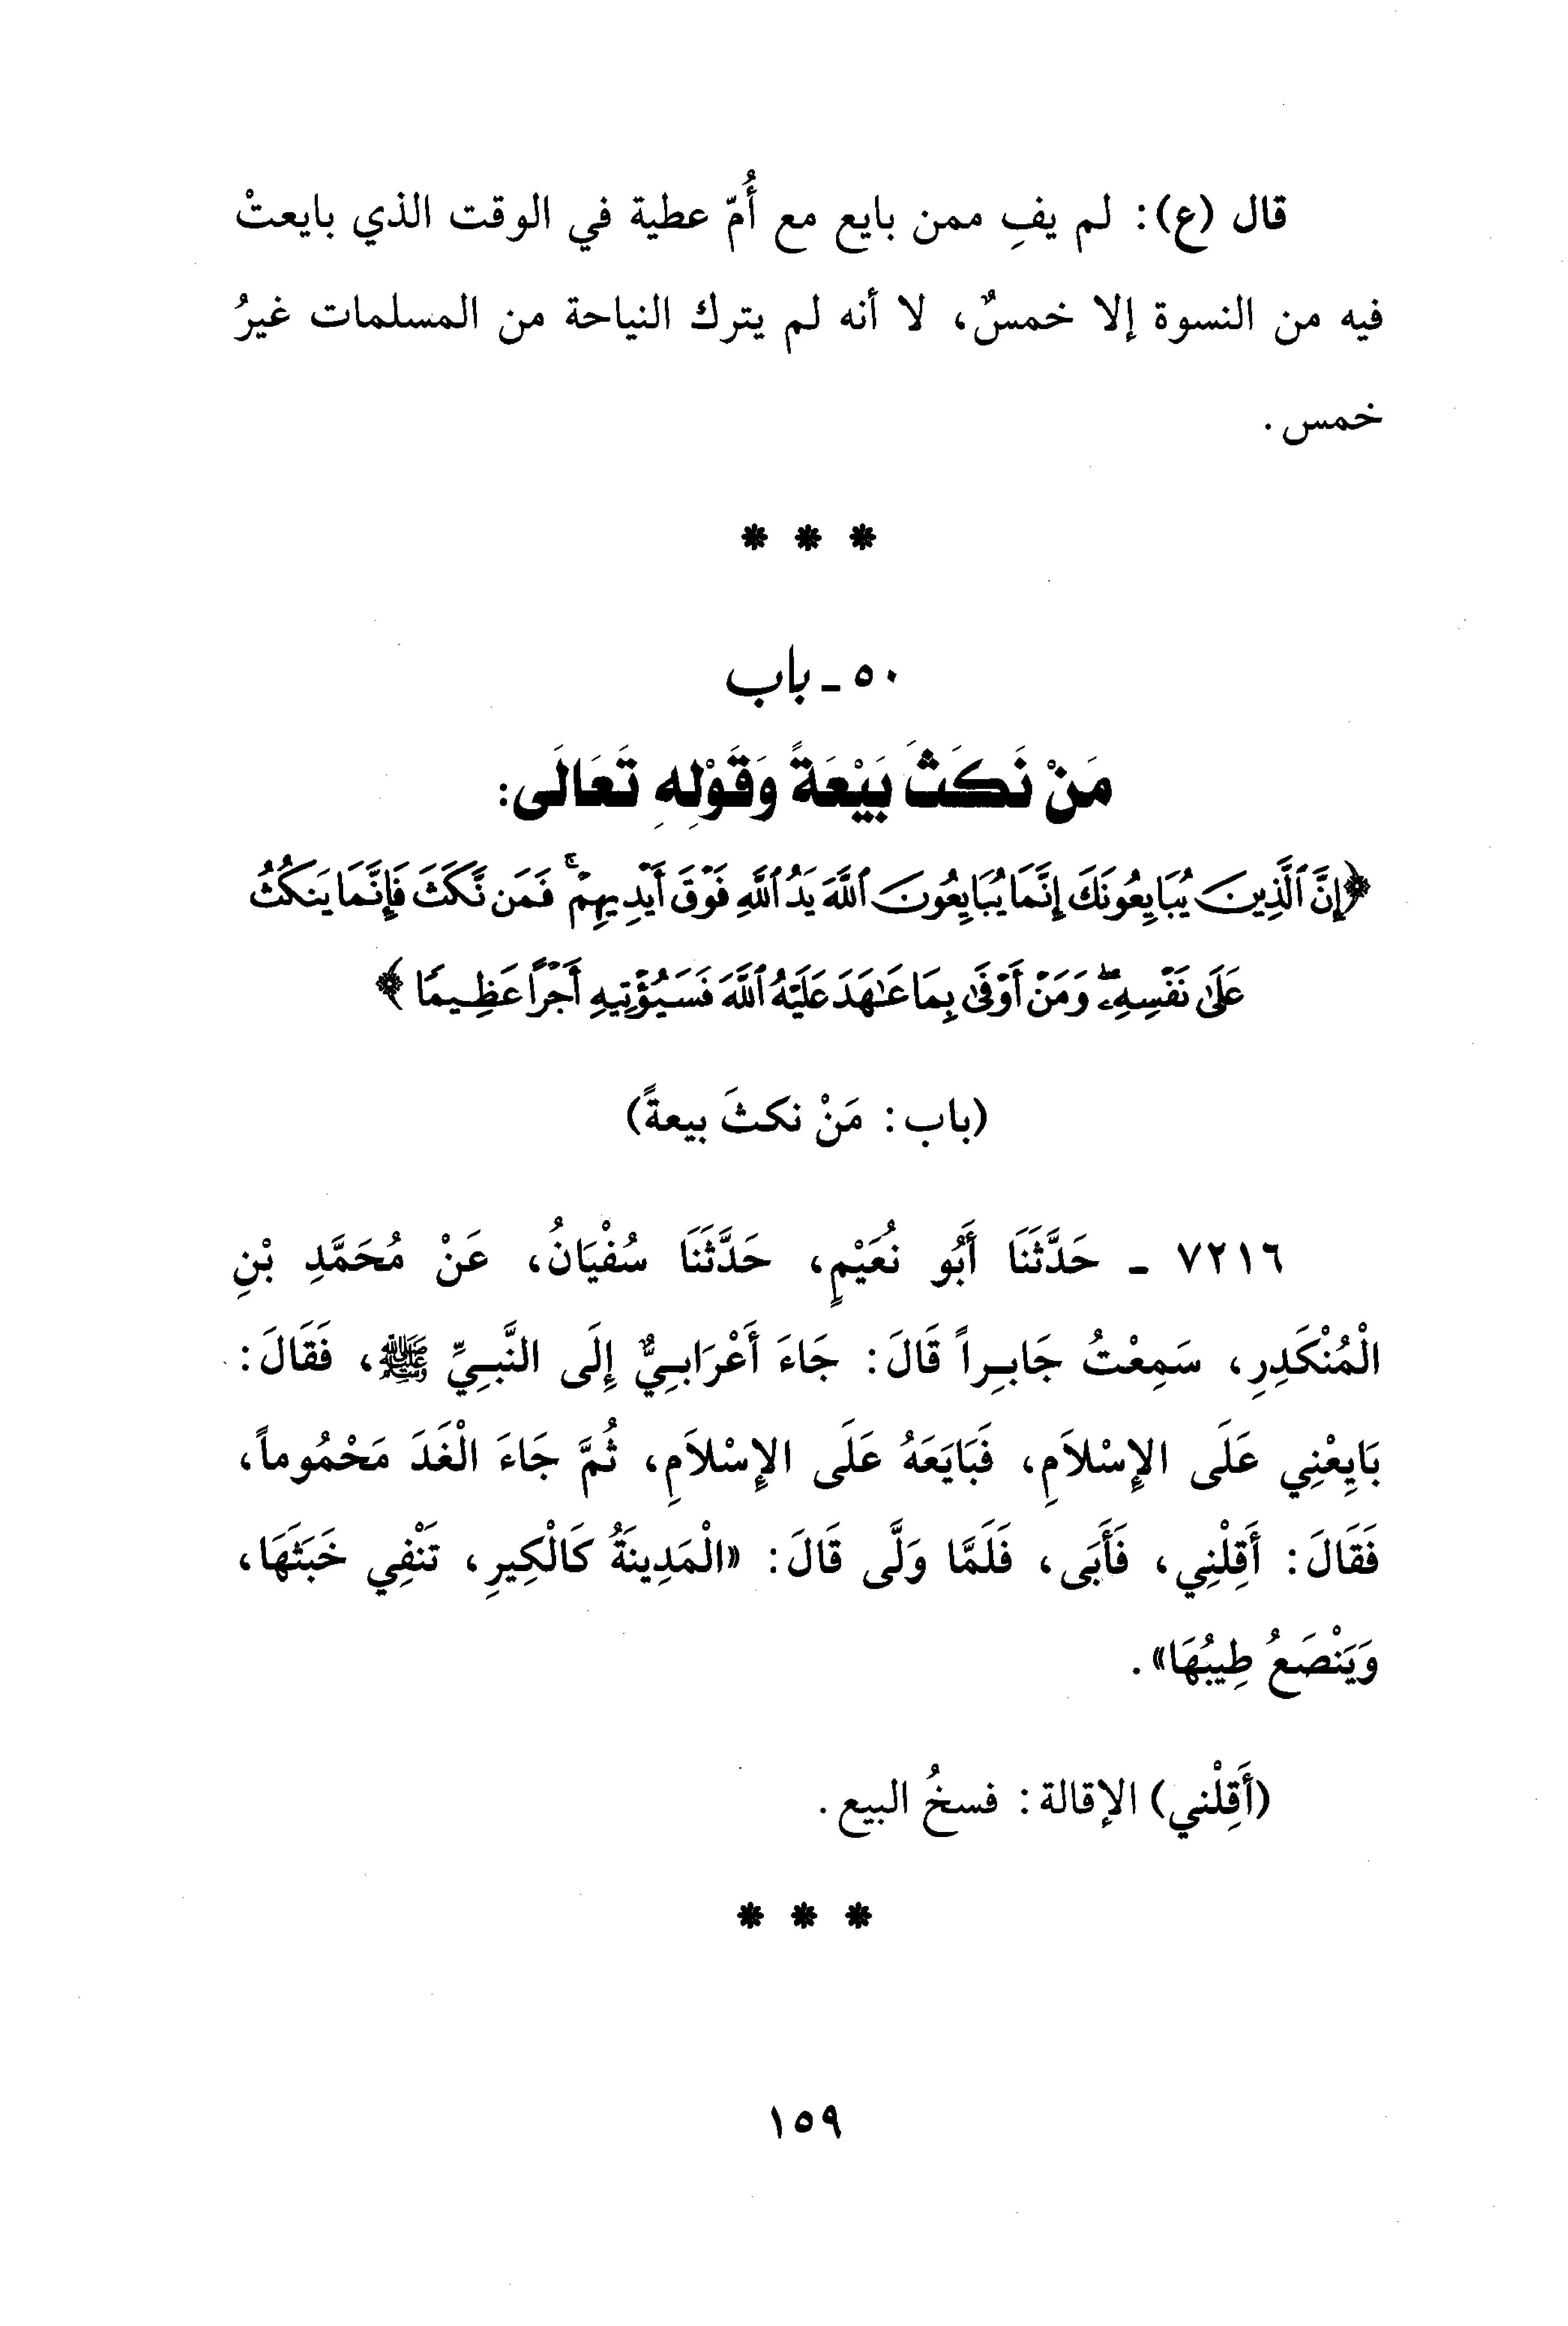 قال (ع): لم يفِ ممن بايع مع أُمّ عطية في الوقت الذي بايعتْ
فيه من النسوة إلا خمسٌ، لا أنه لم يترك النياحة من المسلمات غيرُ
خمس.
* * *
٥٠ - باب
مَنْ نَكَثَ بَيْعَةً وَقَوْلِهِ تَعَالَى:
﴿إِنَّ ٱلَّذِينَ يُبَايِعُونَكَ إِنَّمَا يُبَايِعُونَ ٱللَّهَ يَدُ ٱللَّهِ فَوْقَ أَيْدِيهِمْ ۚ فَمَن نَّكَثَ فَإِنَّمَا يَنكُثُ
عَلَىٰ نَفْسِهِۦ ۖ وَمَنْ أَوْفَىٰ بِمَا عَـٰهَدَ عَلَيْهُ ٱللَّهَ فَسَيُؤْتِيهِ أَجْرًا عَظِيمًا﴾
(باب: مَنْ نكثَ بيعةً)
٧٢١٦ - حَدَّثَنَا أَبُو نُعَيْمٍ، حَدَّثَنَا سُفْيَانُ، عَنْ مُحَمَّدِ بْنِ
الْمُنْكَدِرِ، سَمِعْتُ جَابِراً قَالَ: جَاءَ أَعْرَابِيٌّ إِلَى النَّبِيِّ ﷺ، فَقَالَ:
بَايِعْنِي عَلَى الإِسْلاَمِ، فَبَايَعَهُ عَلَى الإِسْلاَمِ، ثُمَّ جَاءَ الْغَدَ مَحْمُوماً،
فَقَالَ: أَقِلْنِي، فَأَبَى، فَلَمَّا وَلَّى قَالَ: «الْمَدِينَةُ كَالْكِيرِ، تَنْفِي خَبَثَهَا،
وَيَنْصَعُ طِيبُهَا».
(أَقِلْني) الإقالة: فسخُ البيع.
* * *
١٥٩